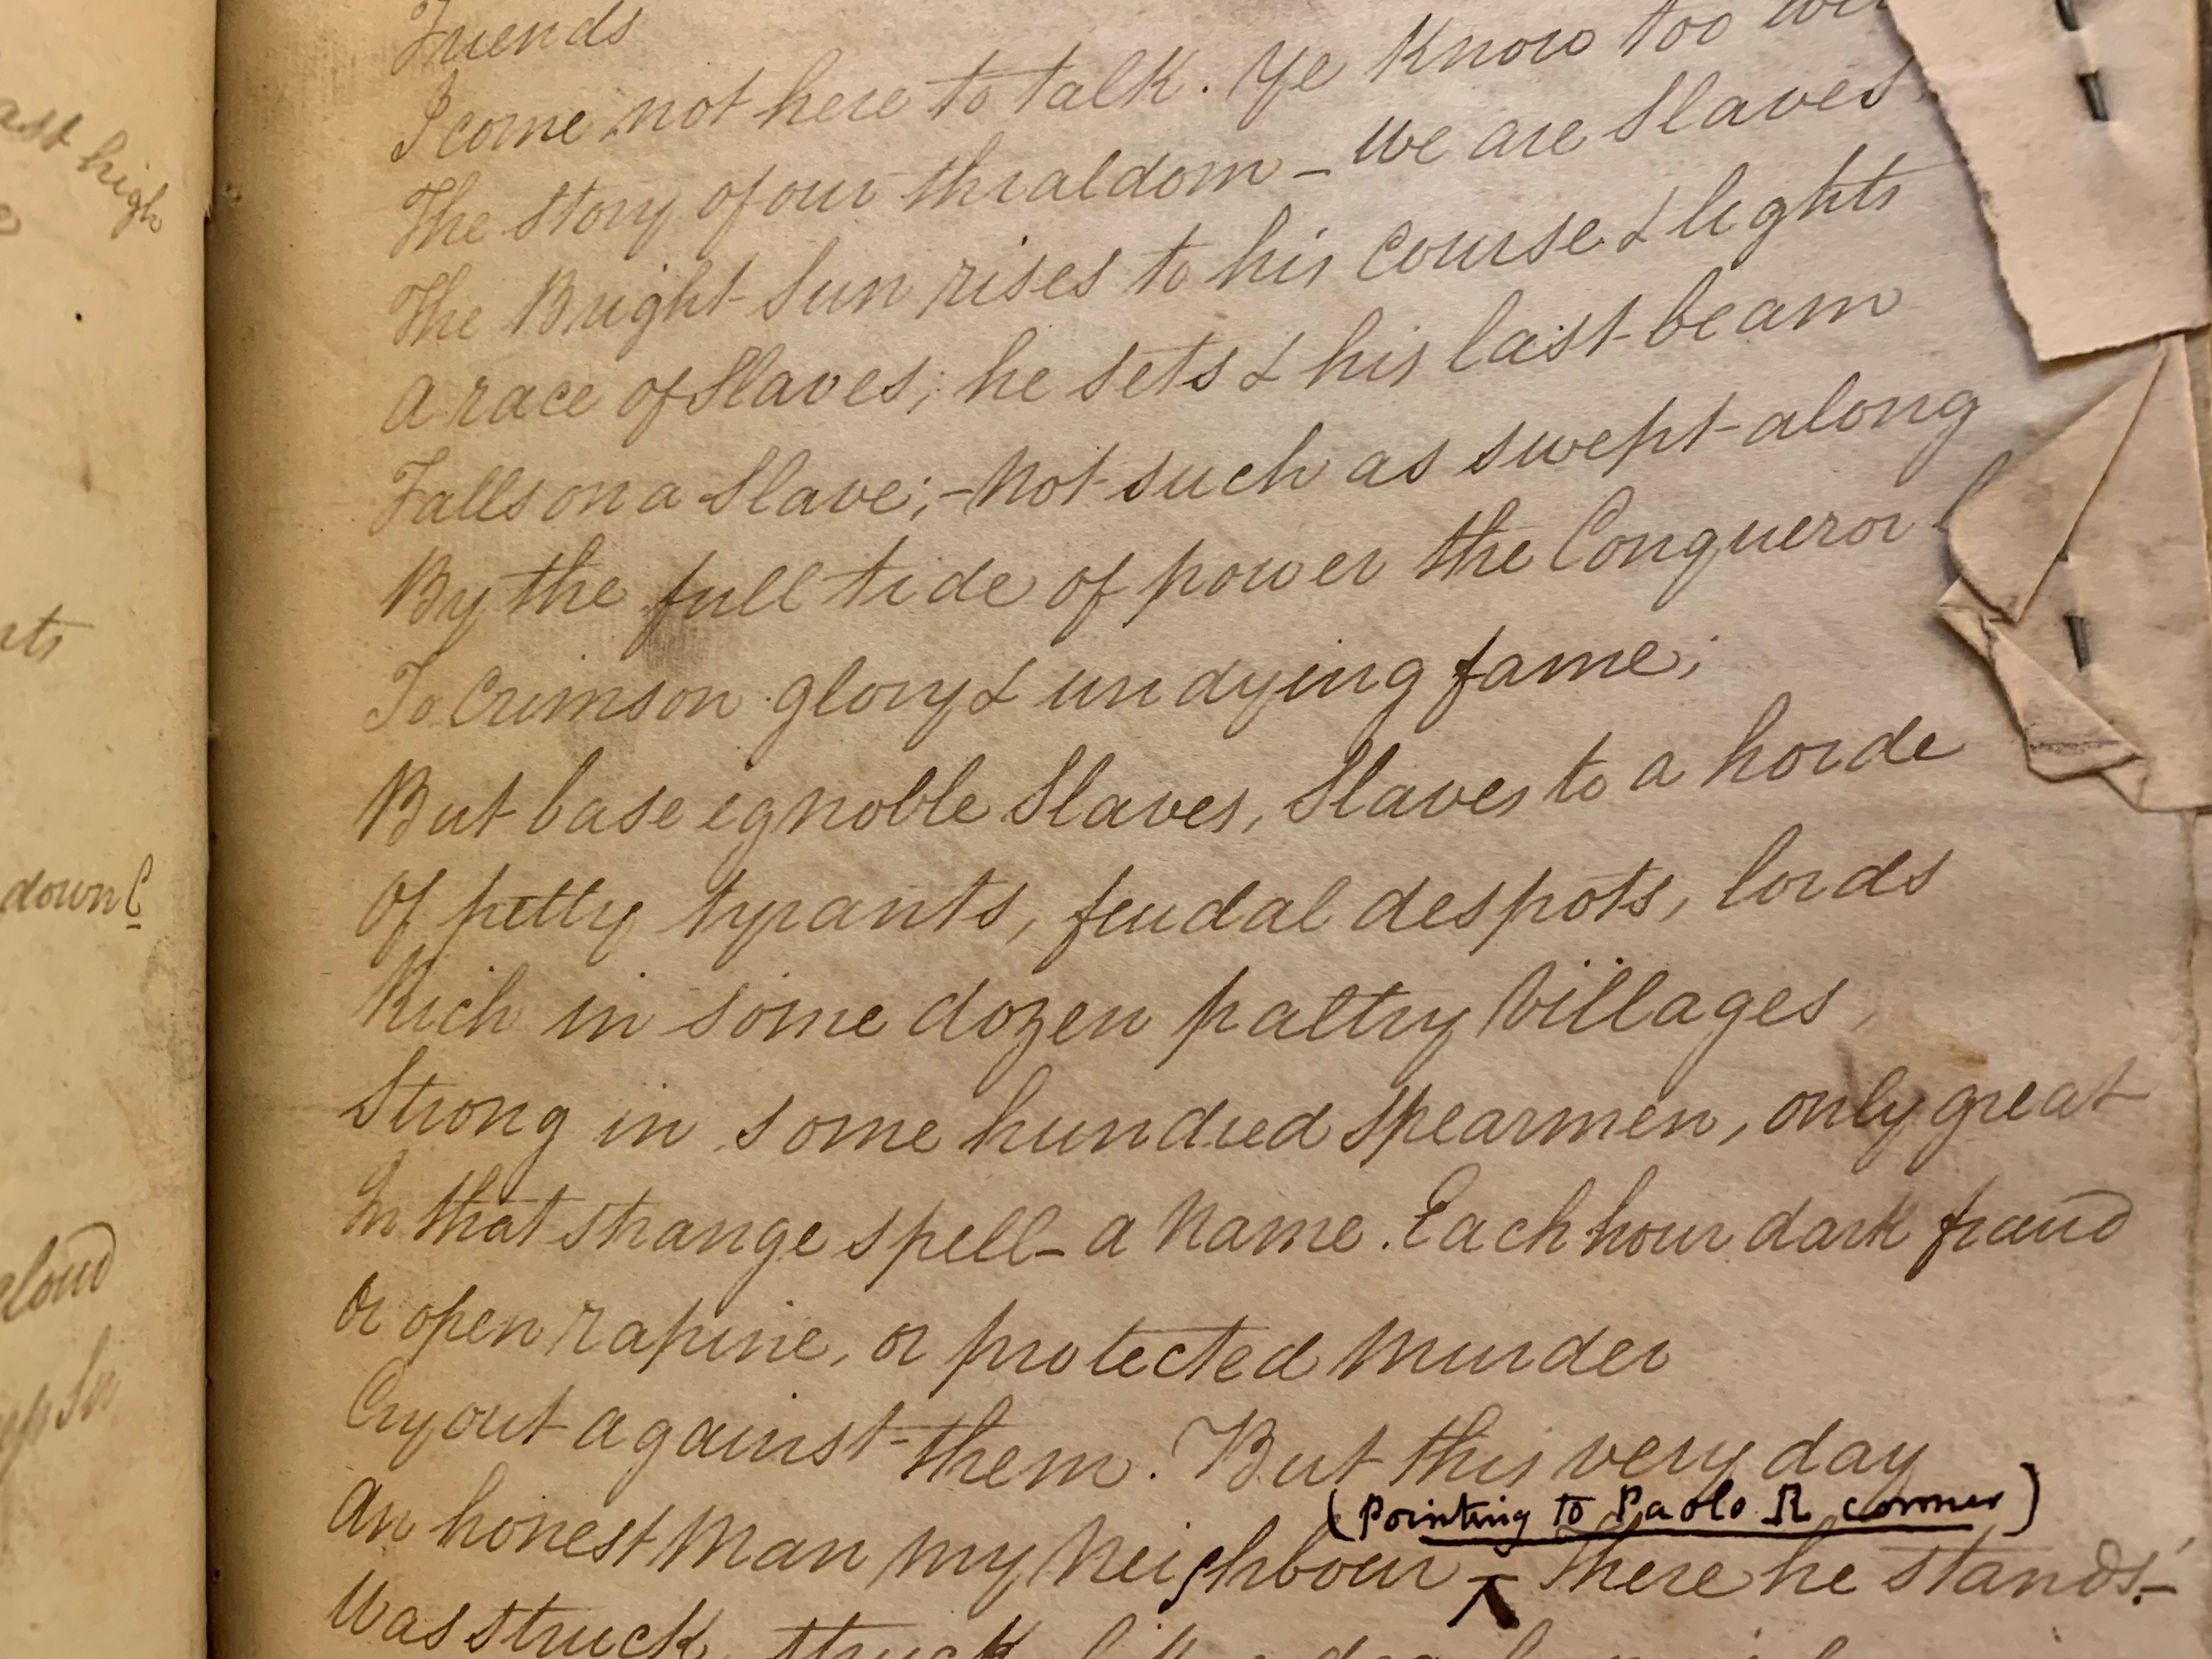 Friends
I come not here to talk. Ye Know too
The story of our thraldom – We are Slaves
The Bright Sun rises to his Course & lights
A race of Slaves; he sets & his last beam
Falls on a Slave; – Not such as swept along
By the full tide of power the Conqueror
To Crimson glory & undying fame;
But base ignoble Slaves, Slaves to a horde
Of petty tyrants, feudal despots, lords
Rich in some dozen paltry Villages,
Strong in some hundred spearmen, only great
In that strange spell – a Name. Each hour dark fraud
Or open rapine, or protected Murder
Cry out against them. But this very day
(Pointing to Paolo R corner)
An honest Man my Neighbour – There he stands! –
Was struck, struck like a dog
ast high
nts
down C
loud
up